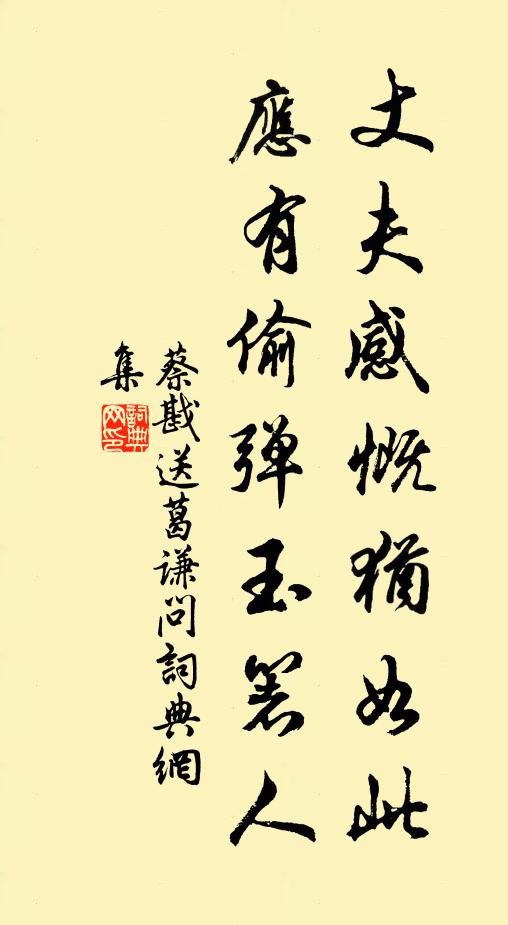 丈夫感慨猶如此
應有偷彈玉箸人
蔡戡送葛謙問詞典網
集
詞典
网印